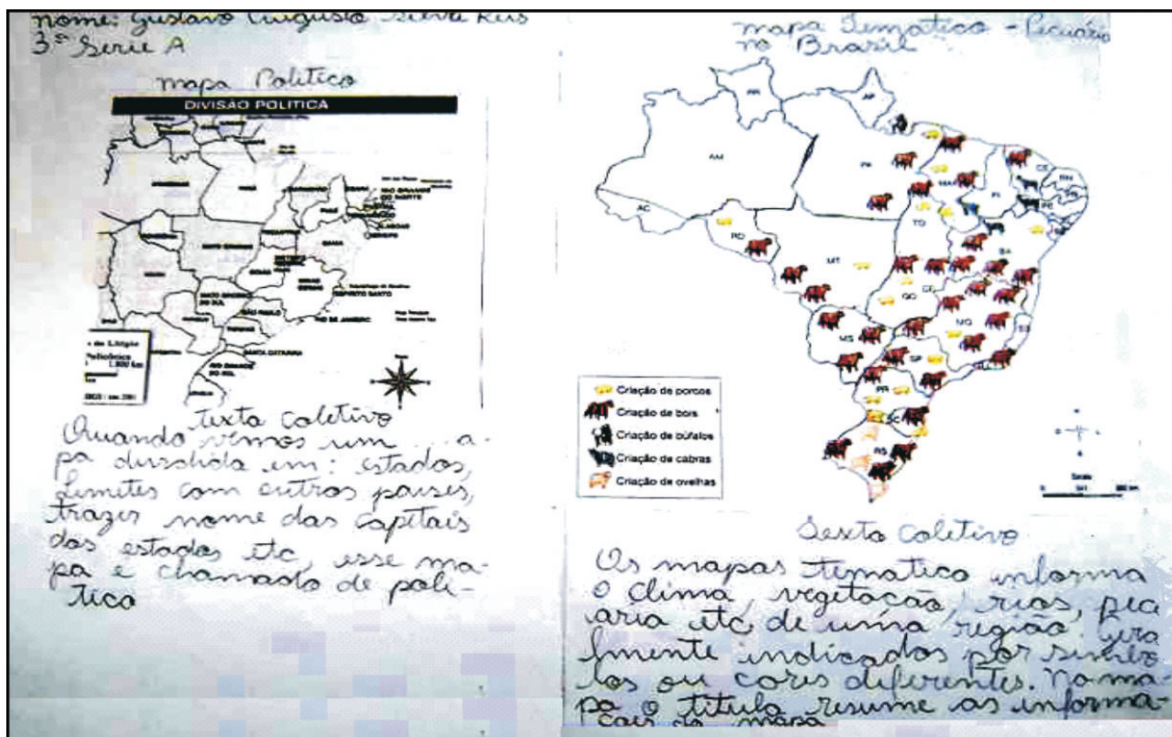 nome: Gustavo Augusto Silva Reis
3ª Serie A
mapa Politico
DIVISÃO POLÍTICA
AMAZONAS
PARÁ
MARANHÃO
CEARÁ
RIO GRANDE DO NORTE
PIAUÍ
ALAGOAS
SERGIPE
BAHIA
MATO GROSSO
GOIÁS
MINAS GERAIS
ESPÍRITO SANTO
MATO GROSSO DO SUL
SÃO PAULO
RIO DE JANEIRO
PARANÁ
SANTA CATARINA
RIO GRANDE DO SUL
texto coletivo
Quando vemos um a-
pa dividida em: estados,
Limites com outros países,
trazer nome das capitais
dos estados etc, esse ma-
pa é chamado de poli-
tico
mapa Tematico - Pecuário
no Brasil
RR
AP
AM
PA
MA
CE
RN
PI
PE
AC
TO
RO
BA
MT
GO
DF
MG
ES
MS
SP
RJ
PR
SC
RS
Criação de porcos
Criação de bois
Criação de búfalos
Criação de cabras
Criação de ovelhas
Escala
Texto coletivo
Os mapas tematico informa
o clima, vegetação, rios, pecu
ária etc, de uma região. Gera
lmente indicados por símbo
los ou cores diferentes. No ma-
pa o titula resume as informa-
ções do mapa